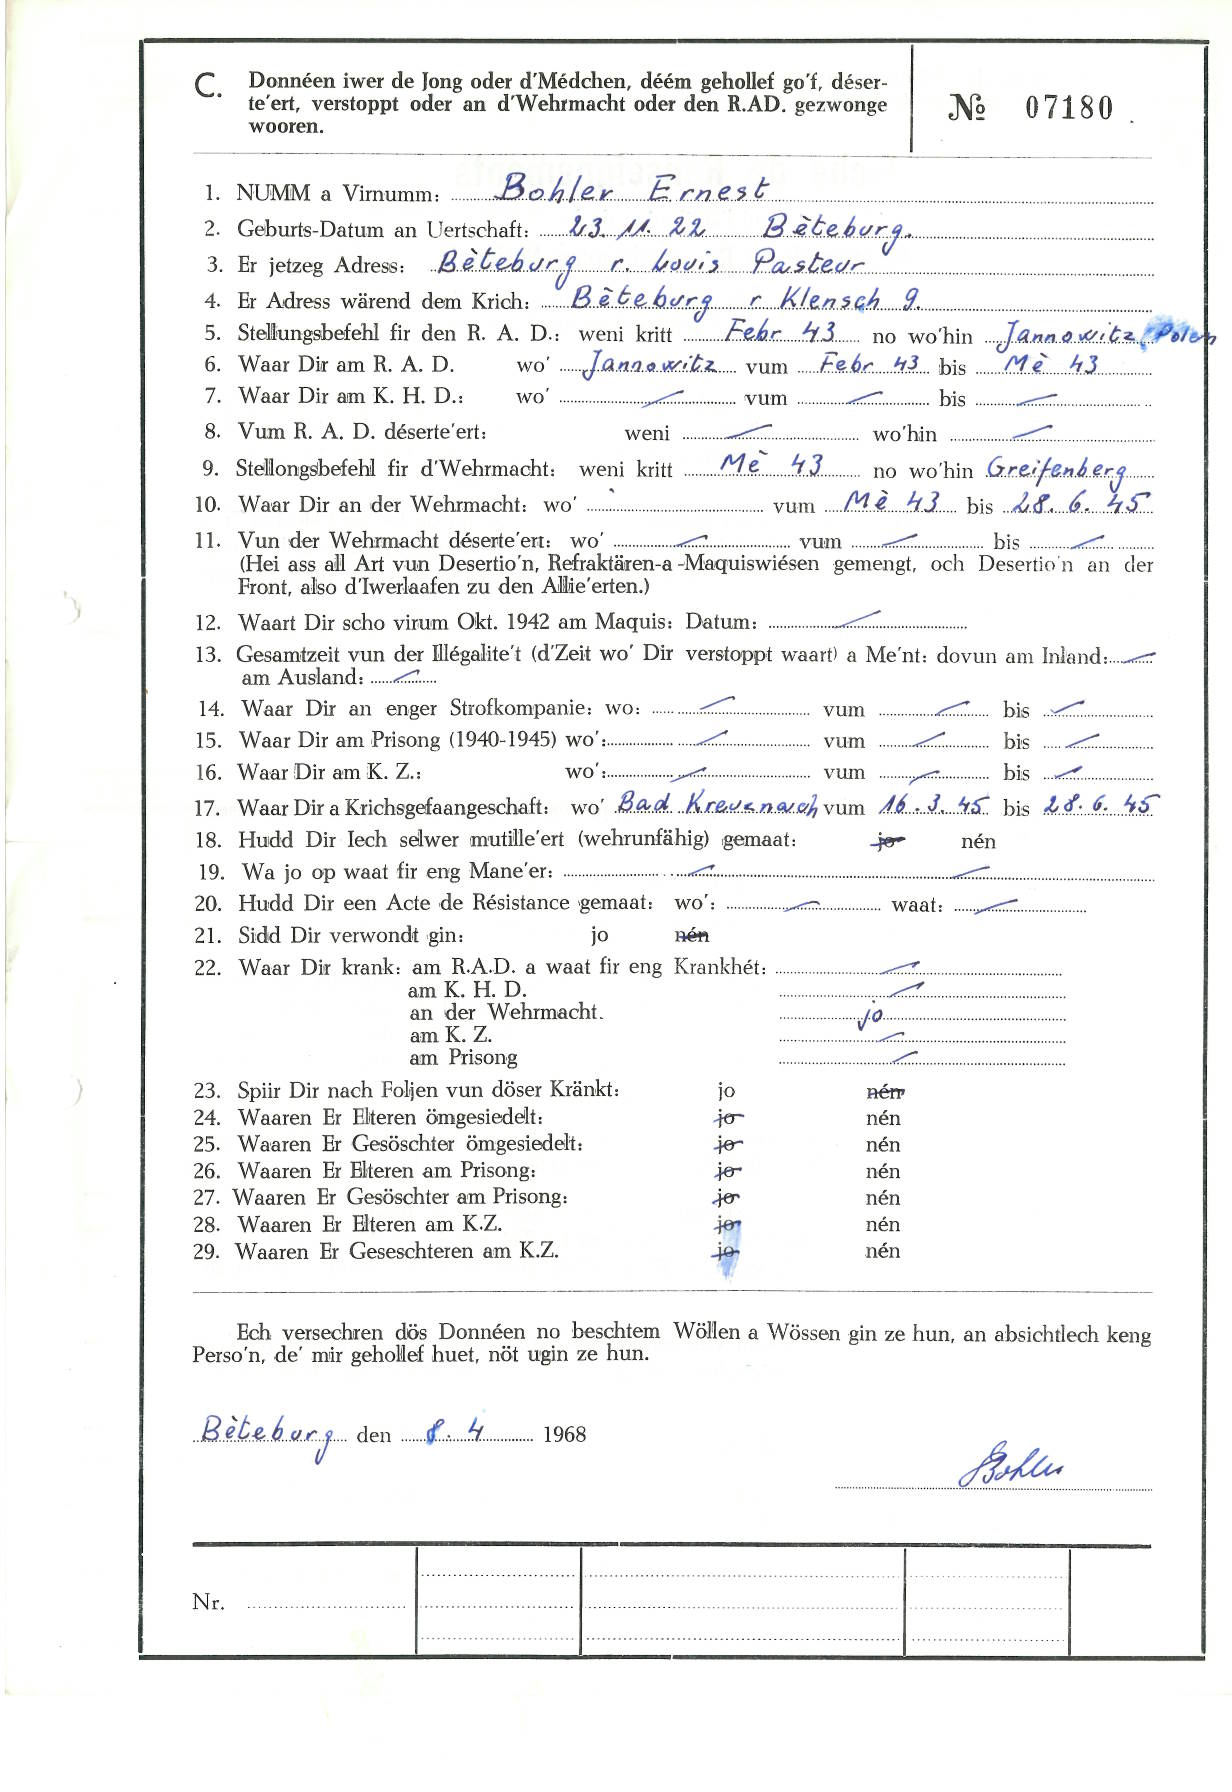 C. Donnéen iwer de Jong oder d'Médchen, déém gehollef go'f, déser-
te'ert, verstoppt oder an d'Wehrmacht oder den R.AD. gezwonge
wooren.
№ 07180
1. NUMM a Virnumm: Bohler Ernest
2. Geburts-Datum an Uertschaft: 23. 11. 22 Bèteburg.
3. Er jetzeg Adress: Bèteburg r. Louis Pasteur
4. Er Adress wärend dem Krich: Bèteburg r Klensch 9.
5. Stellungsbefehl fir den R. A. D.: weni kritt Febr 43 no wo'hin Jannowitz, Polen
6. Waar Dir am R. A. D. wo' Jannowitz vum Febr 43 bis Mè 43
7. Waar Dir am K. H. D.: wo' — vum — bis —
8. Vum R. A. D. déserte'ert: weni — wo'hin —
9. Stellongsbefehl fir d'Wehrmacht: weni kritt Mè 43 no wo'hin Greifenberg
10. Waar Dir an der Wehrmacht: wo' vum Mè 43 bis 28. 6. 45
11. Vun der Wehrmacht déserte'ert: wo' — vum — bis —
(Hei ass all Art vun Desertio'n, Refraktären-a -Maquiswiésen gemengt, och Desertio'n an der
Front, also d'Iwerlaafen zu den Allie'erten.)
12. Waart Dir scho virum Okt. 1942 am Maquis: Datum: —
13. Gesamtzeit vun der Illégalite't (d'Zeit wo' Dir verstoppt waart) a Me'nt: dovun am Inland: —
am Ausland: —
14. Waar Dir an enger Strofkompanie: wo: — vum — bis —
15. Waar Dir am Prisong (1940-1945) wo': — vum — bis —
16. Waar Dir am K. Z.: wo': — vum — bis —
17. Waar Dir a Krichsgefaangeschaft: wo' Bad Kreuznach vum 16. 3. 45 bis 28. 6. 45
18. Hudd Dir Iech selwer mutille'ert (wehrunfähig) gemaat: jo nén
19. Wa jo op waat fir eng Mane'er: — —
20. Hudd Dir een Acte de Résistance gemaat: wo': — waat: —
21. Sidd Dir verwondt gin: jo nén
22. Waar Dir krank: am R.A.D. a waat fir eng Krankhét: —
am K. H. D. —
an der Wehrmacht. jo
am K. Z. —
am Prisong —
23. Spiir Dir nach Foljen vun döser Kränkt: jo nén
24. Waaren Er Elteren ömgesiedelt: jo nén
25. Waaren Er Gesöschter ömgesiedelt: jo nén
26. Waaren Er Elteren am Prisong: jo nén
27. Waaren Er Gesöschter am Prisong: jo nén
28. Waaren Er Elteren am K.Z. jo nén
29. Waaren Er Geseschteren am K.Z. jo nén
Ech versechren dös Donnéen no beschtem Wöllen a Wössen gin ze hun, an absichtlech keng
Perso'n, de' mir gehollef huet, nöt ugin ze hun.
Bèteburg den 8. 4 1968
Bohler
Nr.